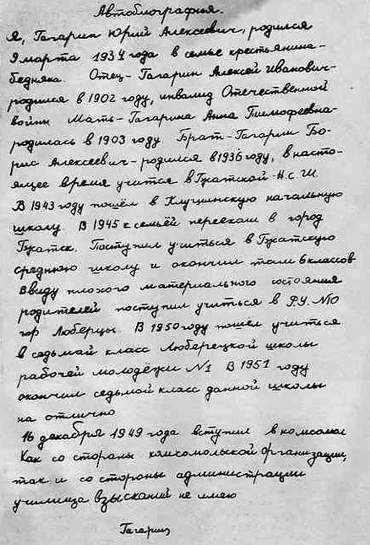 Автобиография.
Я, Гагарин Юрий Алексеевич, родился
9 марта 1934 года в семье крестьянина-
бедняка. Отец- Гагарин Алексей Иванович-
родился в 1902 году, инвалид Отечественной
войны Мать- Гагарина Анна Тимофеевна-
родилась в 1903 году Брат- Гагарин Бо-
рис Алексеевич- родился в 1936 году, в насто-
ящее время учится в Гжатской Н.С.Ш.
В 1943 году пошёл в Клушинскую начальную
школу В 1945 с семьёй переехал в город
Гжатск. Поступил учиться в Гжатскую
среднюю школу и окончил там 6 классов
Ввиду плохого материального состояния
родителей поступил учиться в Р.У. №10
гор Люберцы. В 1950 году пошёл учиться
в седьмой класс Люберецкой школы
рабочей молодёжи №1 В 1951 году
окончил седьмой класс данной школы
на отлично
16 декабря 1949 года вступил в комсомол
Как со стороны комсомольской организации,
так и со стороны администрации
училища взысканий не имею
Гагарин